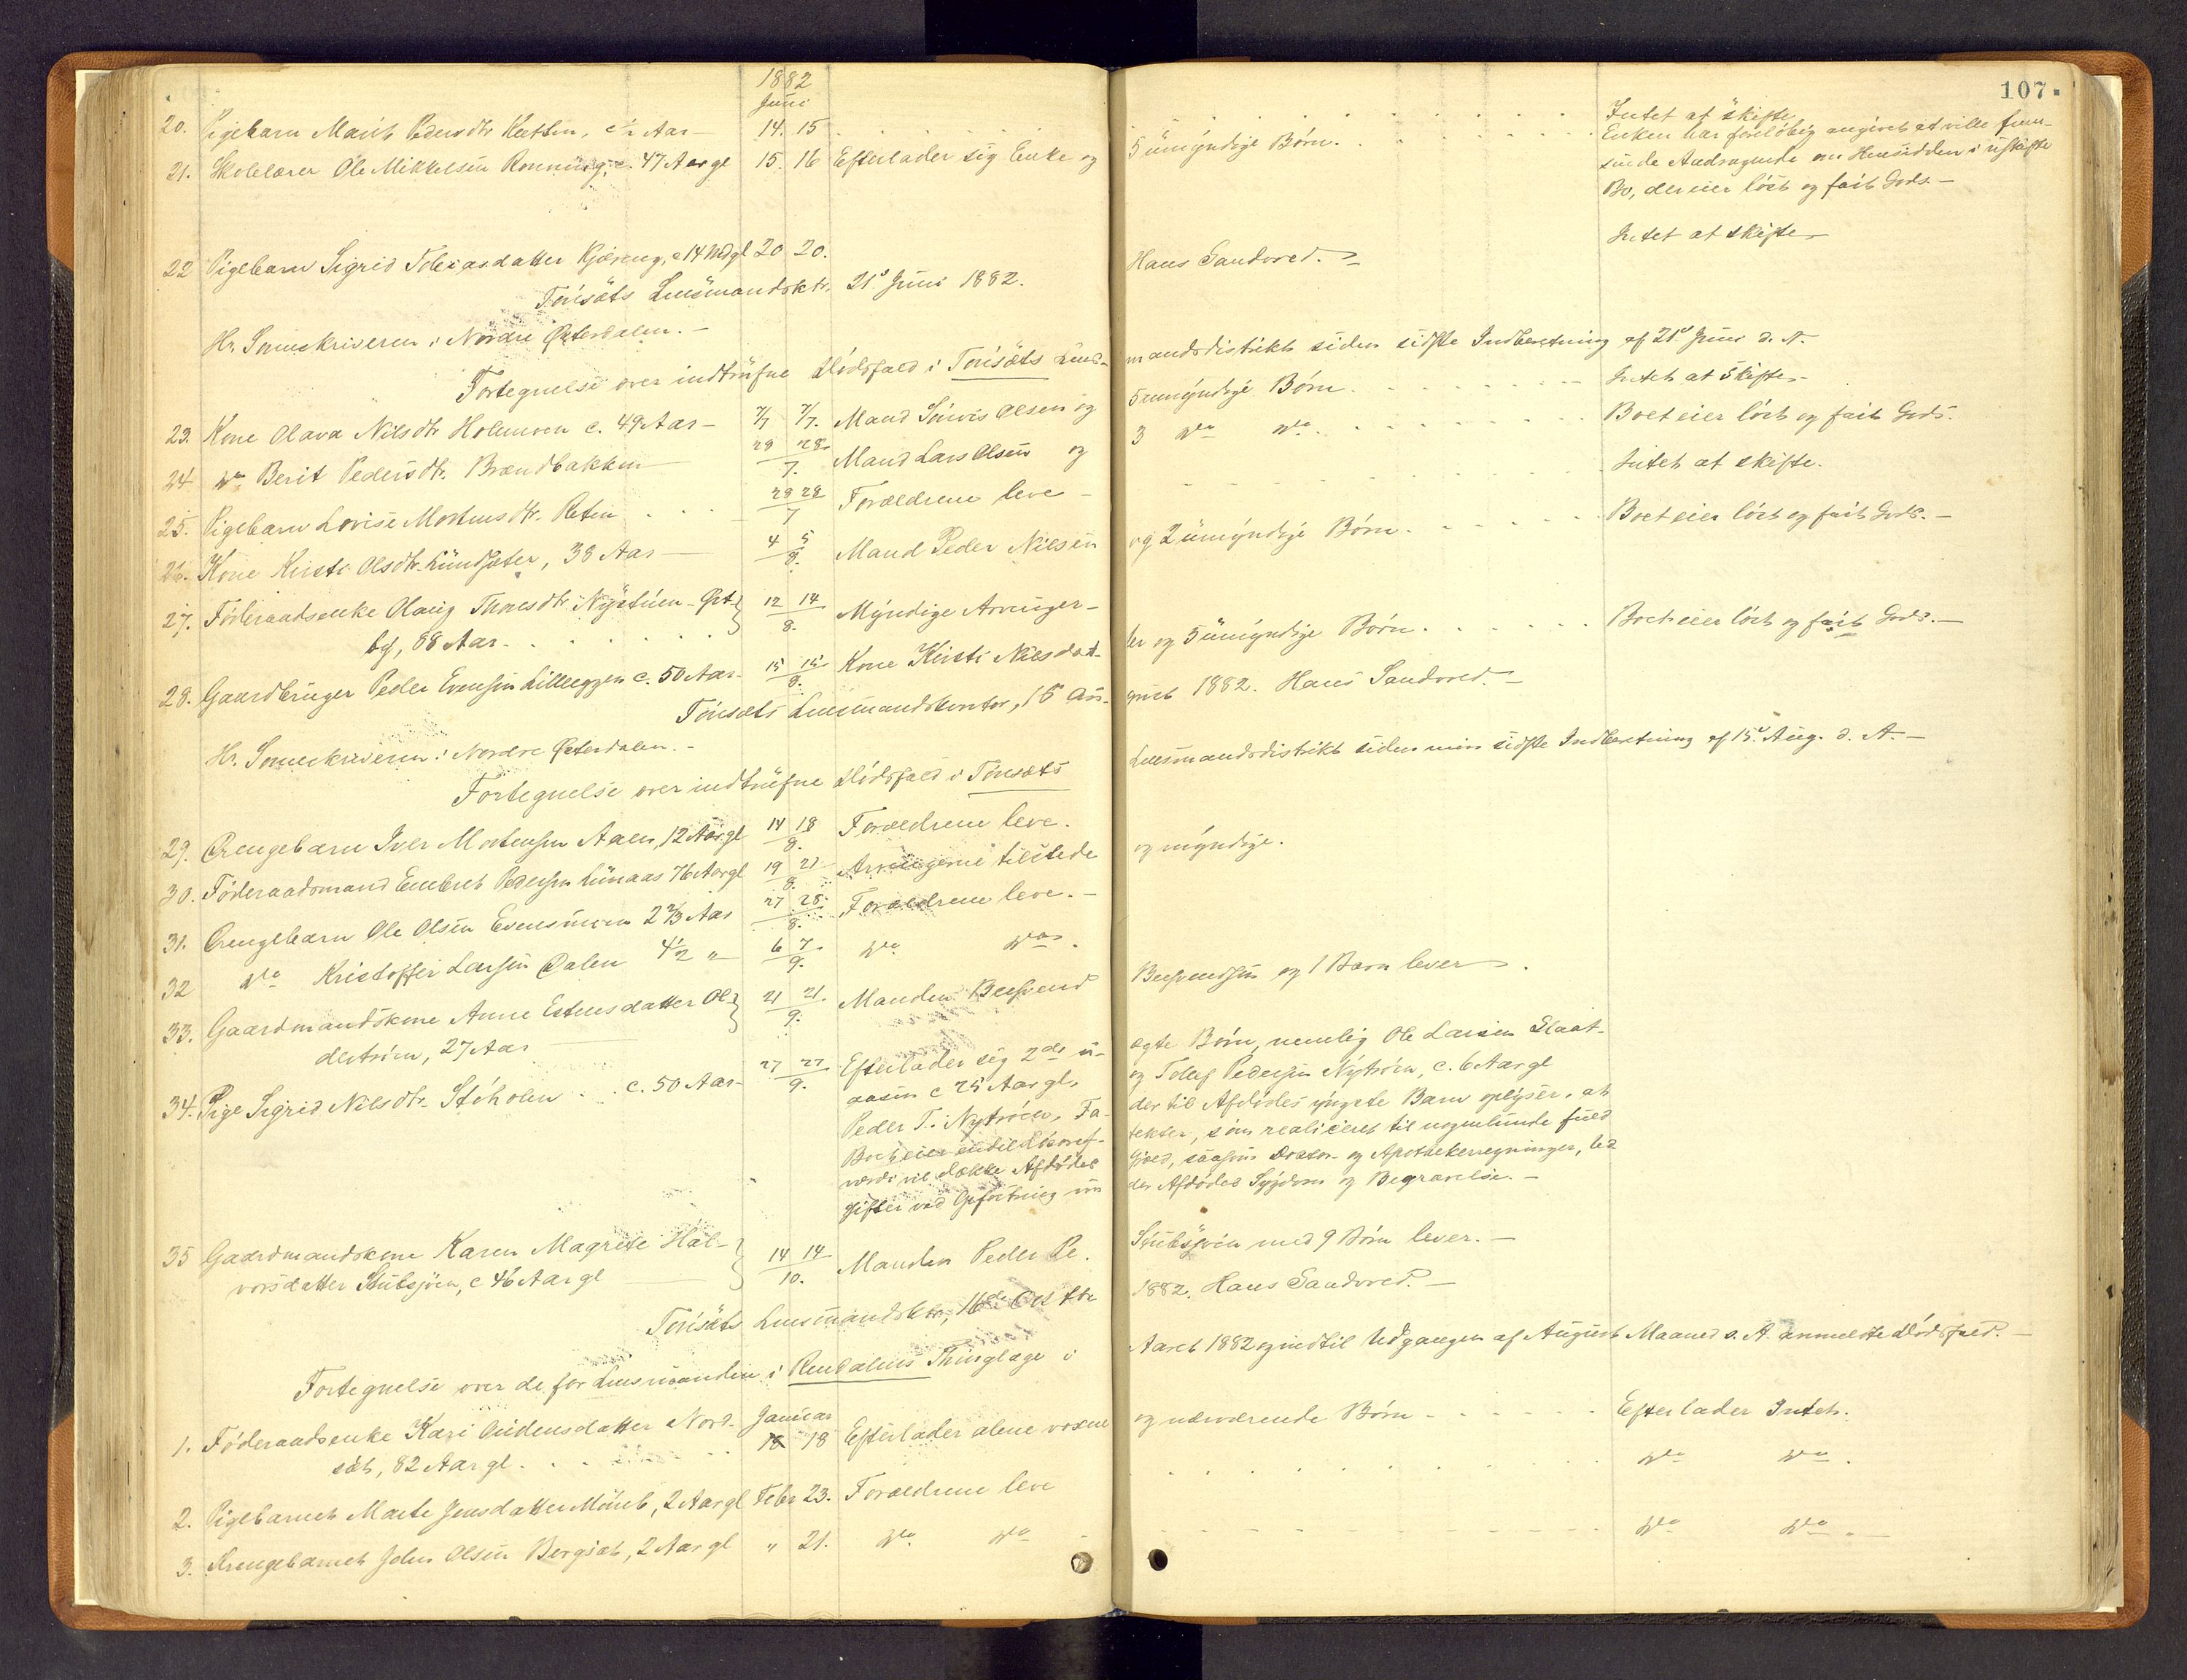 107.
1882
Juni
20. Pigebarn Marit Pedersdtr Kletten, c ½ Aar — 14. 15 Intet at skifte
21. Skolelærer Ole Mikkelsen Rønning, c. 47 Aar gl 15. 16 Efterlader sig Enke og 5 umyndige Børn. Enken har foreløbig angivet at ville frem-
sende Andragende om Hensidden i uskiftet
Bo, der eier løst og fast Gods. —
22 Pigebarn Sigrid Tobiasdatter Kjøreng, c 14 Mdgl 20 20. Intet at skifte
Tønsæts Lensmandsktr. 21de Juni 1882. Hans Sandvæd. —
Hr. Sorenskriveren i Nordre Østerdalen. —
Fortegnelse over indtrufne Dødsfald i Tønsæts Lens-mandsdistrikt siden sidste Indberetning af 21de Juni d. A.
23. Kone Olava Nilsdtr Holmen c. 49 Aar — 7/7 7/7. Mand Olsen og 5 umyndige Børn. Intet at skifte
24 do Berit Pedersdtr. Brændbakken 28 28/7. Mand Lars Olsen og 3 do do. Boet eier løst og fast Gods.
25. Pigebarn Lovise Mortensdtr. Reten 28 28/7 Forældrene leve — Intet at skifte.
26. Kone Kirsti Olsdtr. Lundsæter, 38 Aar — 4 5/8. Mand Peder Nilsen og 2 umyndige Børn. Boet eier løst og fast Gods. —
27. Føderaadsenke Olaug Thoresdtr Nystuen - Øst-
bg, 88 Aar. 12 14/8. Myndige Arvinger —
28. Gaardbruger Peder Evensen Lilleeggen c. 50 Aar 15 15/8. Kone Kirsti Nilsdat-ter og 5 umyndige Børn. Boet eier løst og fast Gods. —
Tønsæts Lensmandskontor, 15 Au-gust 1882. Hans Sandvæd. —
Hr. Sorenskriveren i Nordre Østerdalen. —
Fortegnelse over indtrufne Dødsfald i Tønsæts Lensmandsdistrikt siden min sidste Indberetning af 15de Aug. d. A. —
29. Drengebarn Iver Mortensen Aaen, 12 Aar gl 14 18/8. Forældrene leve.
30. Føderaadsmand Embret Pedersen Lunaas 76 Aar gl 19 21/8. Arvingerne tilstede og myndige.
31. Drengebarn Ole Olsen Evensmoen 2⅔ Aar 27 28/8. Forældrene leve. —
32 do Kristoffer Larsen Dalen 4½ " 6 7/9. do do.
33. Gaardmandskone Anne Estensdatter Ol-
destrøen, 27 Aar 21 21./9. Manden Bersvend Bersvendsen og 1 Barn lever.
34. Pige Sigrid Nilsdtr. Støholen c. 50 Aar 27 27/9. Efterlader sig 2de u-ægte Børn, nemlig Ole Larsen Slaat-
aasen c 25 Aar gl. og Tollef Pedersen Nytrøen, c. 6 Aar gl
Peder T. Nytrøen, Fa-der til Afdødes yngste Barn oplyser, at
Boet eier en del Løsøref-fekter, som realiceret til nogenlunde fuld
værdi vil dække Afdødes Gjæld, saasom Doctor- og Apothekerregninger, Ud-
gifter ved Opfostring un-der Afdødes Sygdom og Begravelse. —
35 Gaardmandskone Karen Magrete Hal-
vorsdatter Stubsjøen, c 46 Aar gl 14 14/10. Manden Peder Pe. Stubsjøen med 9 Børn lever. —
Tønsæts Lensmandsktr, 16de Octbr 1882. Hans Sandvæd. —
Fortegnelse over de for Lensmanden i Rendalens Thinglage i Aaret 1882 og indtil Udgangen af August Maaned s. A. anmeldte Dødsfald. —
1. Føderaadsenke Kari Audensdatter Nord-
sæt, 82 Aar gl. Januar 18 18 Efterlader alene voxne og nærværende Børn Efterlader Intet.
2. Pigebarnet Marte Jensdatter Møseb, 2 Aar gl Febr 23. Forældrene leve do do.
3. Drengebarnet John Olsen Bergset, 2 Aar gl " 21. do do do do. —